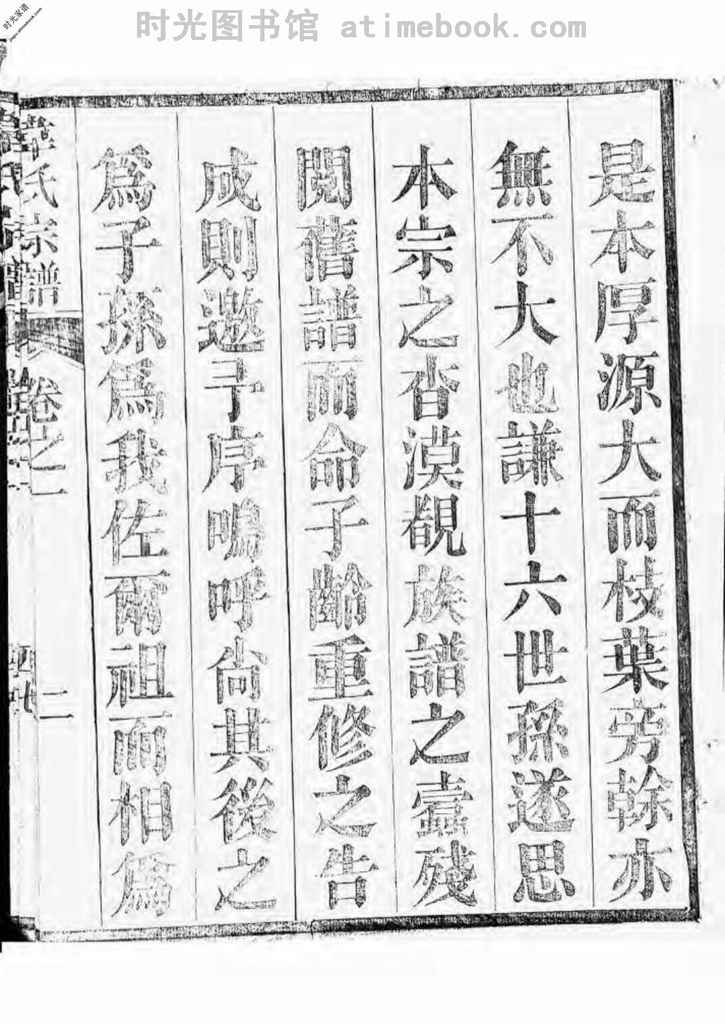 时光图书馆 atimebook.com
是本厚源大而枝葉旁幹亦
無不大也謙十六世孫遂思
本宗之杳漠覩族譜之蠧殘
閱舊譜而命子齡重修之告
成則邀予序嗚呼尙其後之
爲子孫爲我佐爾祖而相爲
氏宗譜
卷之一
二